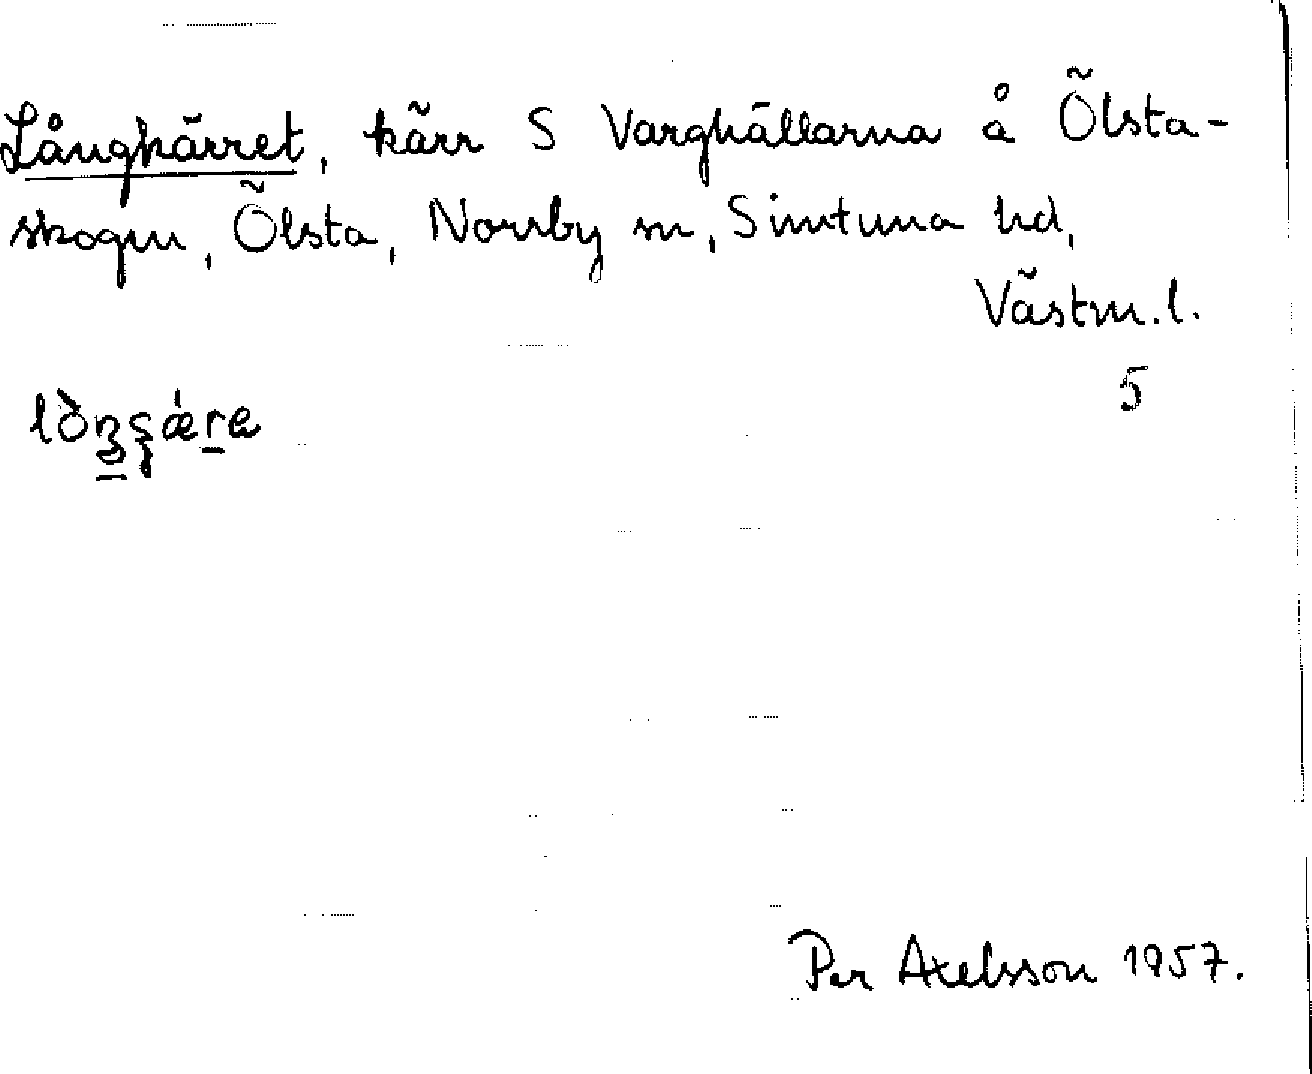 Långkärret, kärr S Varghällarna å Ölsta-
skogen, Ölsta, Norrby sn, Simtuna hd,
Västm. l.
5
Per Axelsson 1957.